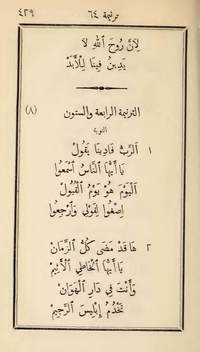 ترنيمة ٦٤
٤٢٩
لِأَنَّ رُوحَ ٱللهِ لَا
يَدِينُ فِينَا لِلْأَبَدْ
الترنيمة الرابعة والستون
(٨)
التوبة
١ الرَّبُّ فَادِينَا يَقُولْ
يَا أَيُّهَا ٱلنَّاسُ ٱسْمَعُوا
اَلْيَوْمَ هُوَ يَوْمُ ٱلْقُبُولْ
اِصْغُوا لِقَوْلِي وَٱرْجِعُوا
٢ هَا قَدْ مَضَى كُلُّ ٱلزَّمَانْ
يَا أَيُّهَا ٱلْخَاطِي ٱلْأَثِيمْ
وَأَنْتَ فِي دَارِ ٱلْهَوَانْ
تَخْدُمُ إِبْلِيسَ ٱلرَّجِيمْ